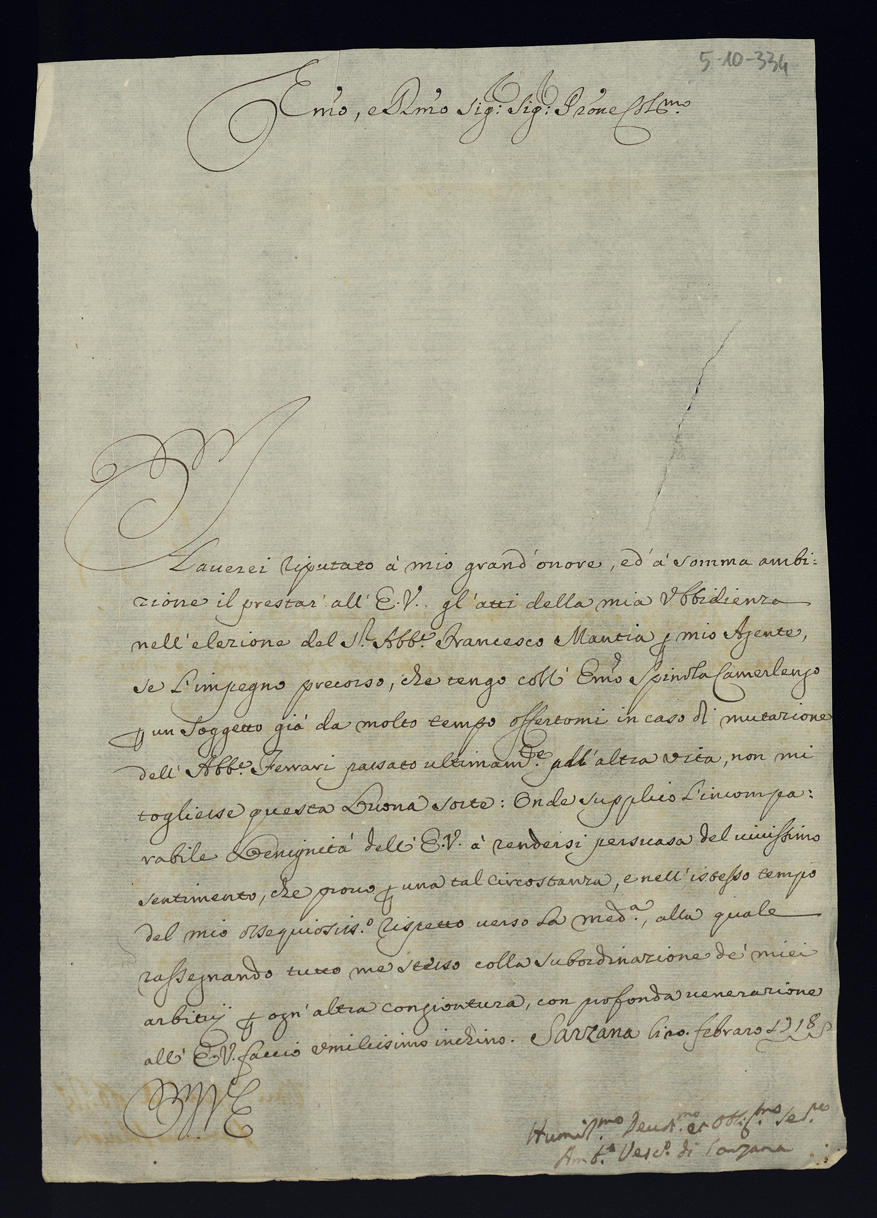 5-10-334
Em̃o, e Rm̃o Sig: Sig: Pr̃one Col.mo
Haverei riputato à mio grand'onore, ed'à somma ambi:
zione il prestar' all'E.V. gl'atti della mia Vbbidienza
nell'elezione del S.r Abb.e Francesco Mantia ꝑ mio Agente,
se l'impegno precorso, che tengo coll' Em̃o Spinola Camerlengo
ꝑ un Soggetto già da molto tempo offertomi in caso di mutazione
dell' Abb.e Ferrari passato ultimam.te all'altra vita, non mi
togliesse questa buona sorte: Onde supplico l'incompa:
rabile benignità dell'E.V. à rendersi persuasa del vivissimo
sentimento, che provo ꝑ una tal circostanza, e nell'istesso tempo
del mio ossequiosiss.o rispetto verso la med.a, alla quale
rassegnando tutto me stesso colla subordinazione de' miei
arbitrij ꝑ ogn'altra congiontura, con profonda venerazione
all' E.V. faccio vmilissimo inchino. Sarzana li 20. febraro 1718
Humil.mo Deuot.mo et Obl.mo Se.re
Amb.o Vesc.o di Sarzana